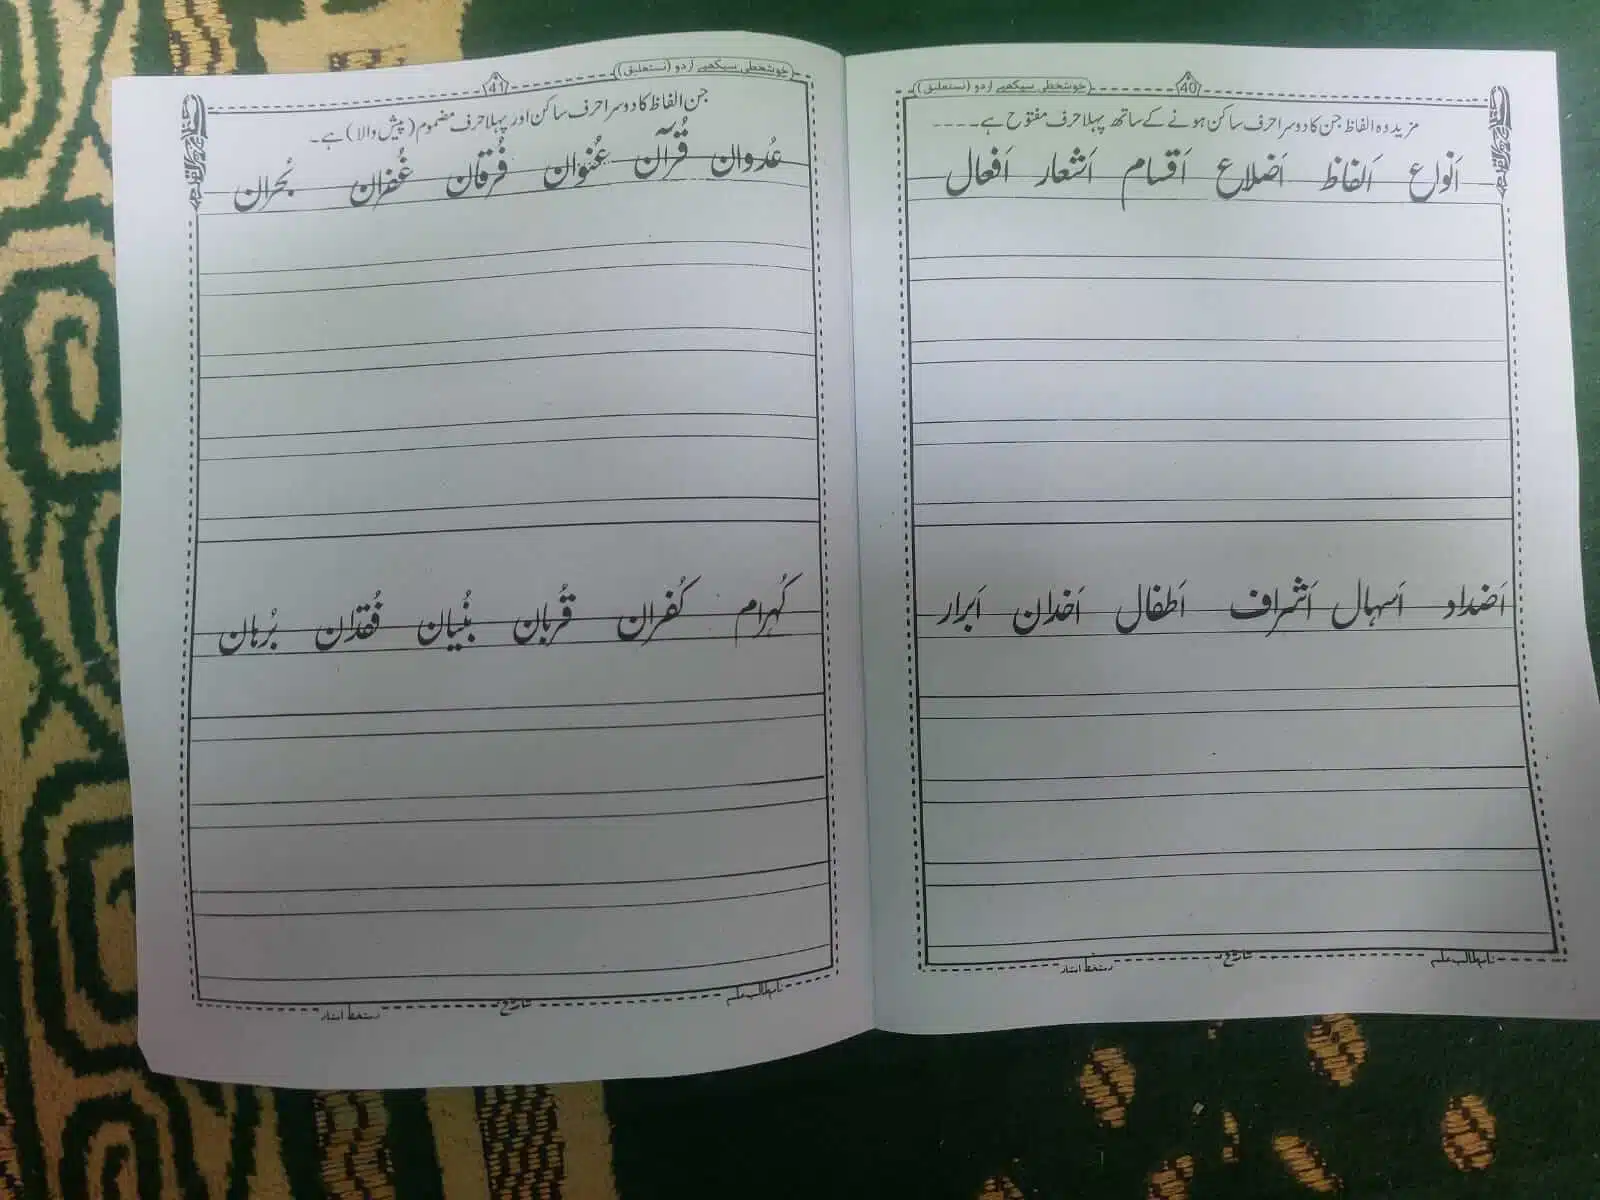 خوشخطی سیکھیے اردو (نستعلیق)
40
مزید وہ الفاظ جن کا دوسرا حرف ساکن ہونے کے ساتھ پہلا حرف مفتوح ہے ۔۔۔۔
اَنواع اَلفاظ اَضلاع اَقسام اَشعار اَفعال
اَضداد اَسہال اَشراف اَطفال اَخدان اَبرار
نام طالب علم
تاریخ
دستخط استاد
خوشخطی سیکھیے اردو (نستعلیق)
41
جن الفاظ کا دوسرا حرف ساکن اور پہلا حرف مضموم (پیش والا) ہے۔
عُدوان قُرآن عُنوان فُرقان غُفران بُحران
کُہرام کُفران قُربان بُنیان فُقدان بُرہان
نام طالب علم
تاریخ
دستخط استاد